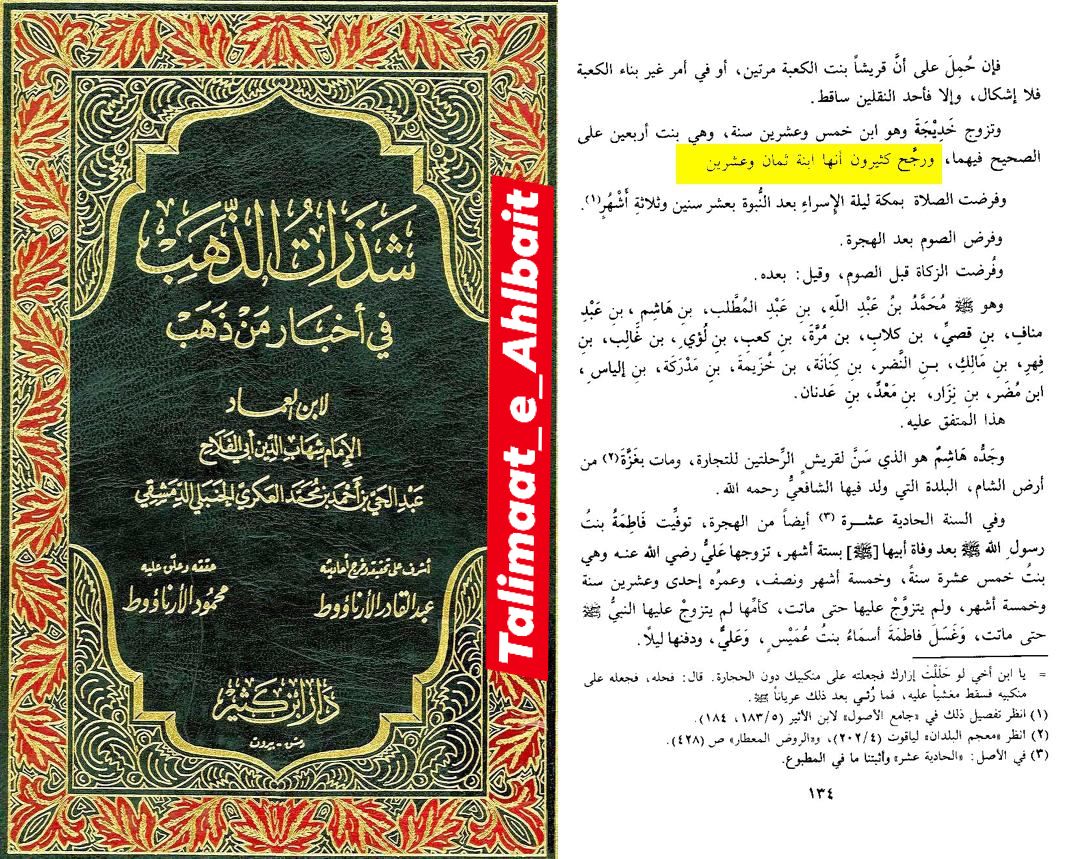 شَذَرَاتُ الذَّهَبِ
في أخبار مَنْ ذَهَبَ
لابن العماد
الإمام شهاب الدين أبي الفلاح
عبد الحي بن أحمد بن محمد العكري الحنبلي الدمشقي
أشرف على تحقيقه وخرج أحاديثه
عبد القادر الأرناؤوط
حققه وعلق عليه
محمود الأرناؤوط
دار ابن كثير
دمشق - بيروت
Talimaat_e_Ahlbait
فإن حُمِلَ على أنَّ قريشاً بنت الكعبة مرتين، أو في أمر غير بناء الكعبة
فلا إشكال، وإلا فأحد النقلين ساقط.
وتزوج خَدِيْجَةَ وهو ابن خمس وعشرين سنة، وهي بنت أربعين على
الصحيح فيهما، ورجَّح كثيرون أنها ابنة ثمان وعشرين
وفرضت الصلاة بمكة ليلة الإسراءِ بعد النُّبوة بعشر سنين وثلاثةِ أَشْهُرٍ(١).
وفرض الصوم بعد الهجرة.
وفُرضت الزكاة قبل الصوم، وقيل: بعده.
وهو ﷺ مُحَمَّدُ بنُ عَبْدِ اللّهِ، بنِ عَبْدِ المُطَّلب، بنِ هَاشِمٍ، بنِ عَبْدِ
منافٍ، بنِ قصيٍّ، بنِ كلابٍ، بنِ مُرَّةَ، بنِ كعبٍ، بنِ لُؤيٍ، بنِ غَالِبٍ، بنِ
فِهرٍ، بنِ مَالِكٍ، بنِ النَّضرِ، بنِ كِنَانَة، بنِ خُزَيمةَ، بنِ مَدْرَكَة، بنِ إلياسٍ،
ابنِ مُضَرَ، بنِ نِزَار، بنِ مَعْدٍّ، بنِ عَدنان.
هذا المتفق عليه.
وجَدُّه هَاشِمٌ هو الذي سَنَّ لقريشٍ الرِّحلتين للتجارة، ومات بغَزَّةَ(٢) من
أرض الشام، البلدة التي ولد فيها الشافعيُّ رحمه الله.
وفي السنة الحادية عشــرة (٣) أيضاً من الهجرة، توفِّيت فَاطِمَةُ بنتُ
رسولِ الله ﷺ بعد وفاة أبيها [ﷺ] بستة أشهر، تزوجها عَليٌّ رضي الله عنه وهي
بنتُ خمس عشرة سنةً، وخمسة أشهر ونصف، وعمرُه إحدى وعشرين سنة
وخمسة أشهر، ولم يتزوَّجْ عليها حتى ماتت، كأمِّها لم يتزوجْ عليها النبيُّ ﷺ
حتى ماتت، وَغَسَلَ فاطمَةَ أسمَاءُ بنتُ عُمَيْسٍ، وَعَليٌّ، ودفنها ليلًا.
= يا ابن أخي لو حَلَلْتَ إزارك فجعلته على منكبيك دون الحجارة. قال: فحله، فجعله على
منكبيه فسقط مغشياً عليه، فما رُئي بعد ذلك عرياناً ﷺ.
(١) انظر تفصيل ذلك في «جامع الأصول» لابن الأثير (١٨٣/٥، ١٨٤).
(٢) انظر «معجم البلدان» لياقوت (٢٠٢/٤)، و«الروض المعطار» ص (٤٢٨).
(٣) في الأصل: «الحادية عشر» وأثبتنا ما في المطبوع.
١٣٤